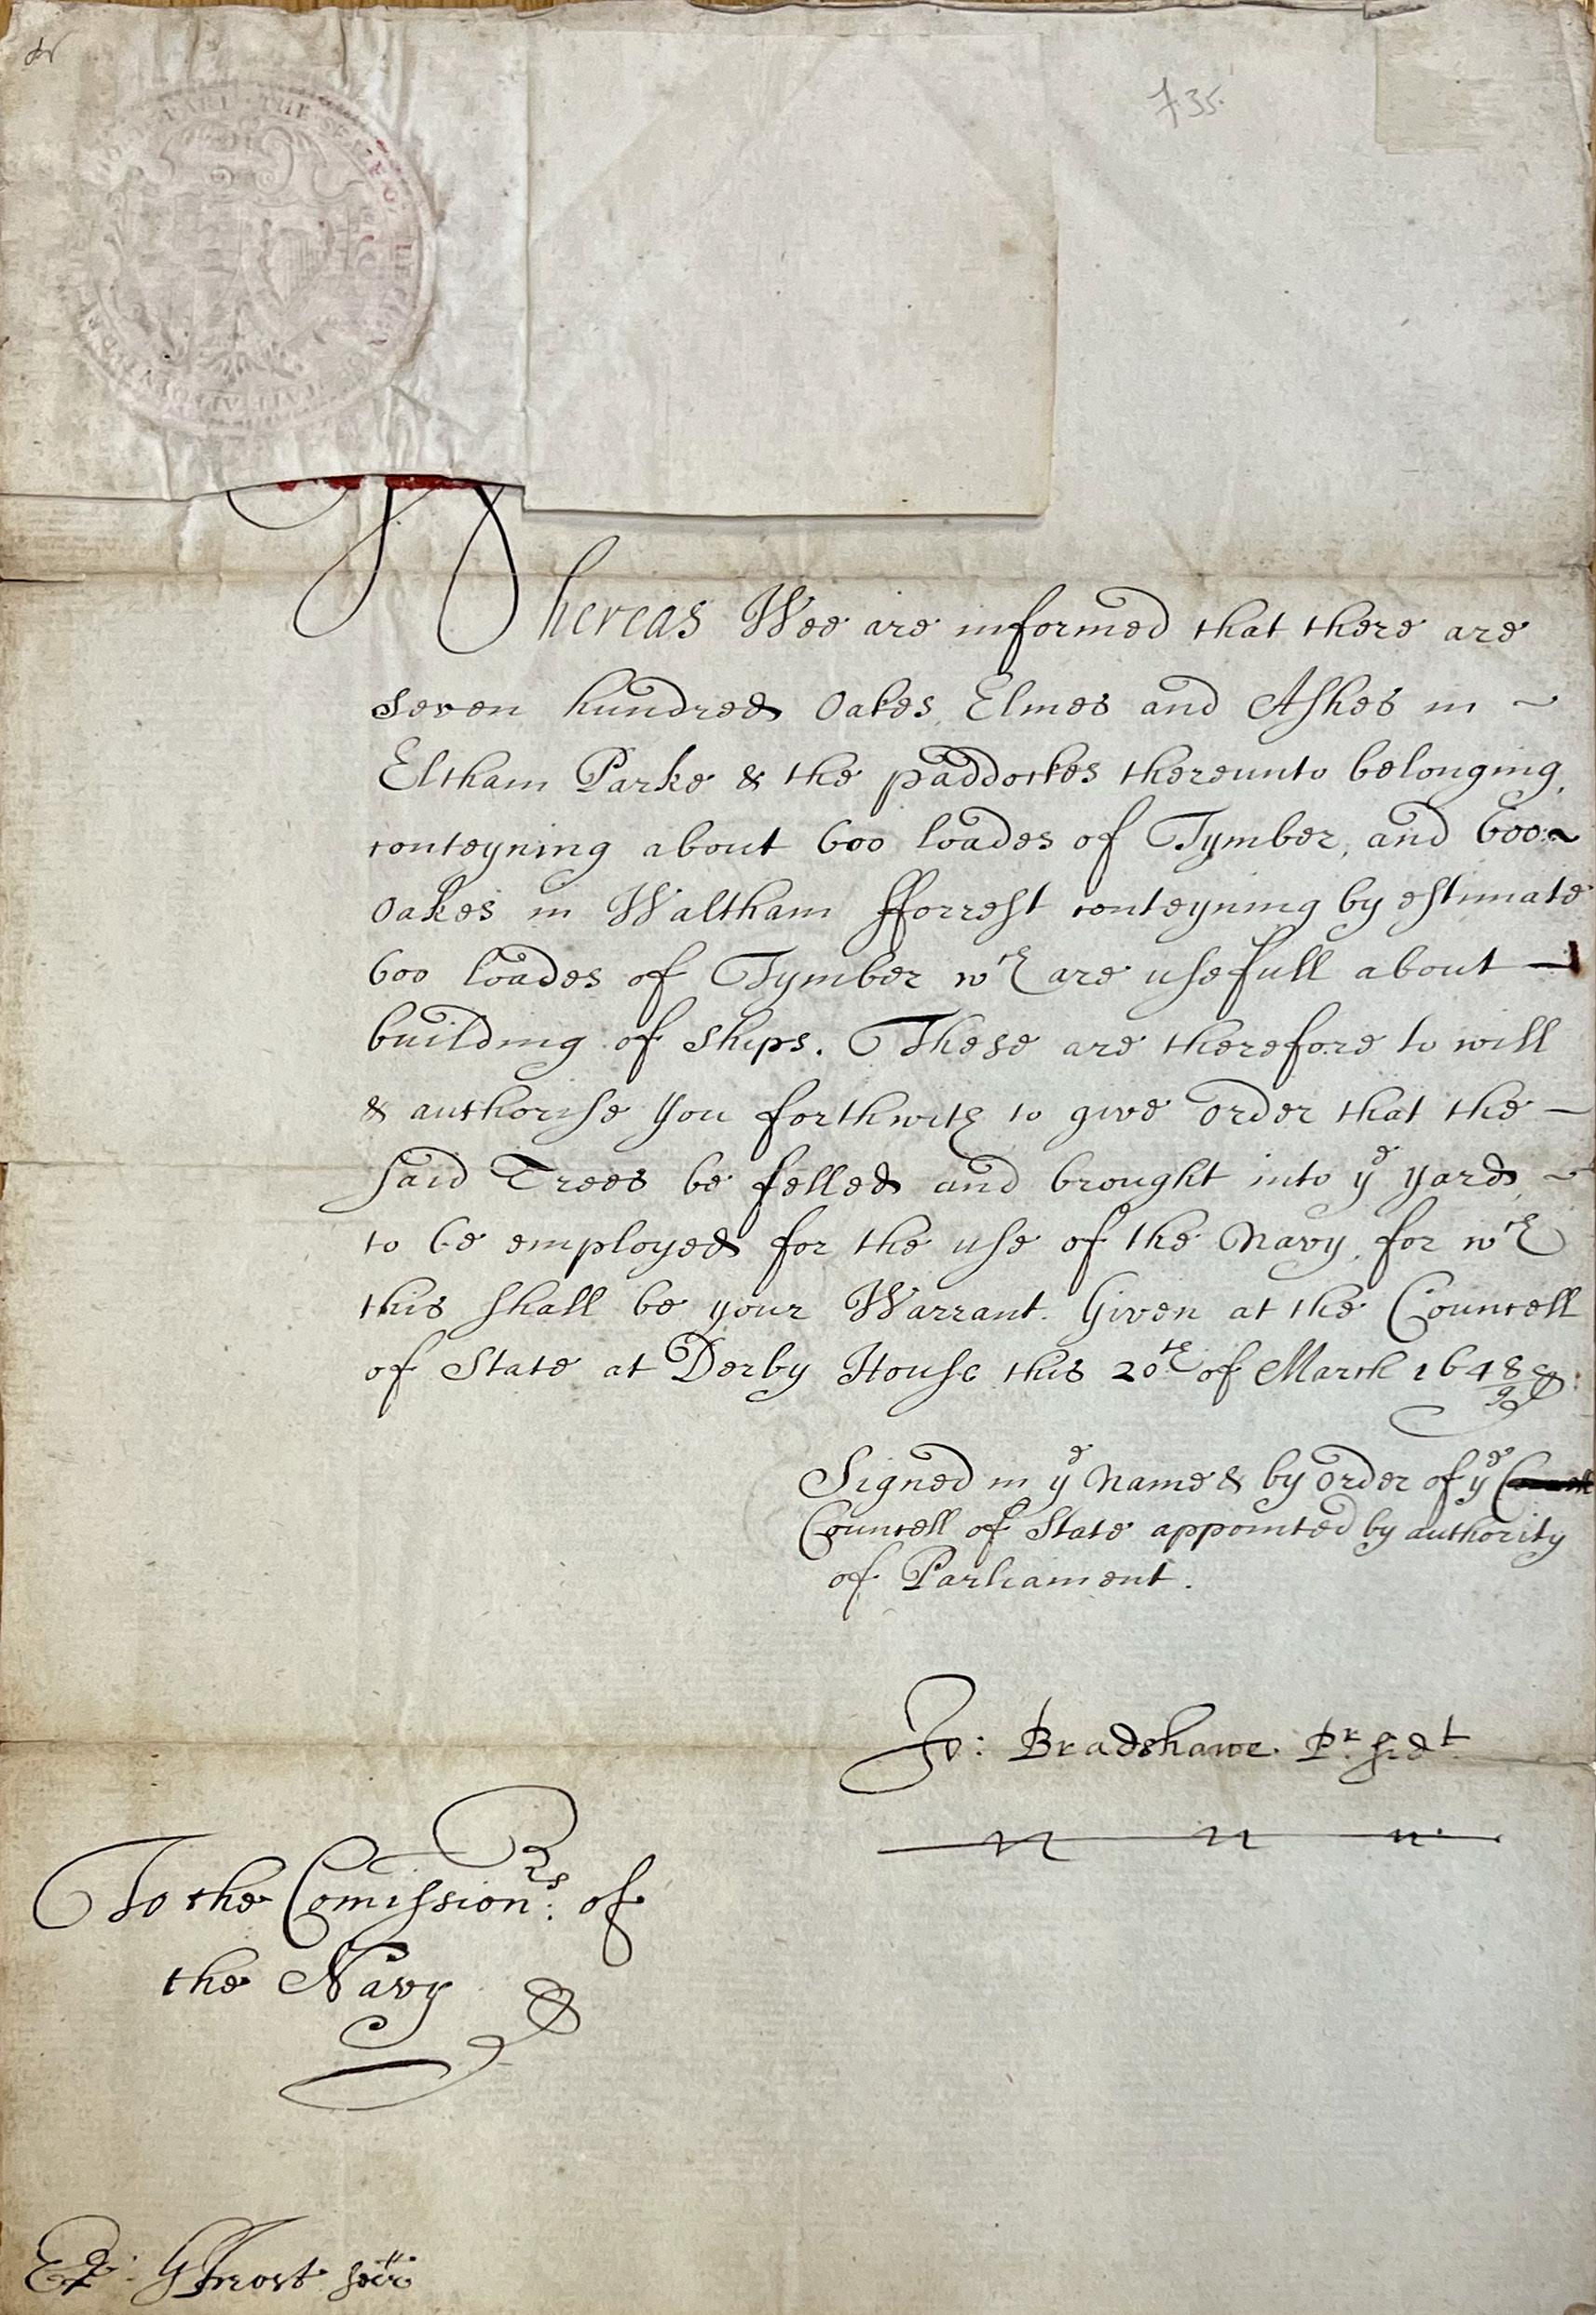 735
Whereas Wee are informed that there are
seven hundred Oakes, Elmes and Ashes in ~
Eltham Parke & the paddockes thereunto belonging,
conteyning about 600 loades of Tymber, and 600 ~
Oakes in Waltham fforrest conteyning by estimate
600 loades of Tymber wch are usefull about —
building of Ships. These are therefore to will
& authorise you forthwith to give order that the —
said Trees be felled and brought into ye yard, ~
to be employed for the use of the Navy, for wch
this shall be your Warrant. Given at the Councell
of State at Derby House this 20th of March 1648/9
Signed in ye Name & by order of ye
Councell of State appointed by authority
of Parliament.
Jo: Bradshawe. Prsidt
To the Comissionrs: of
the Navy
Ex: Gfrost Secr